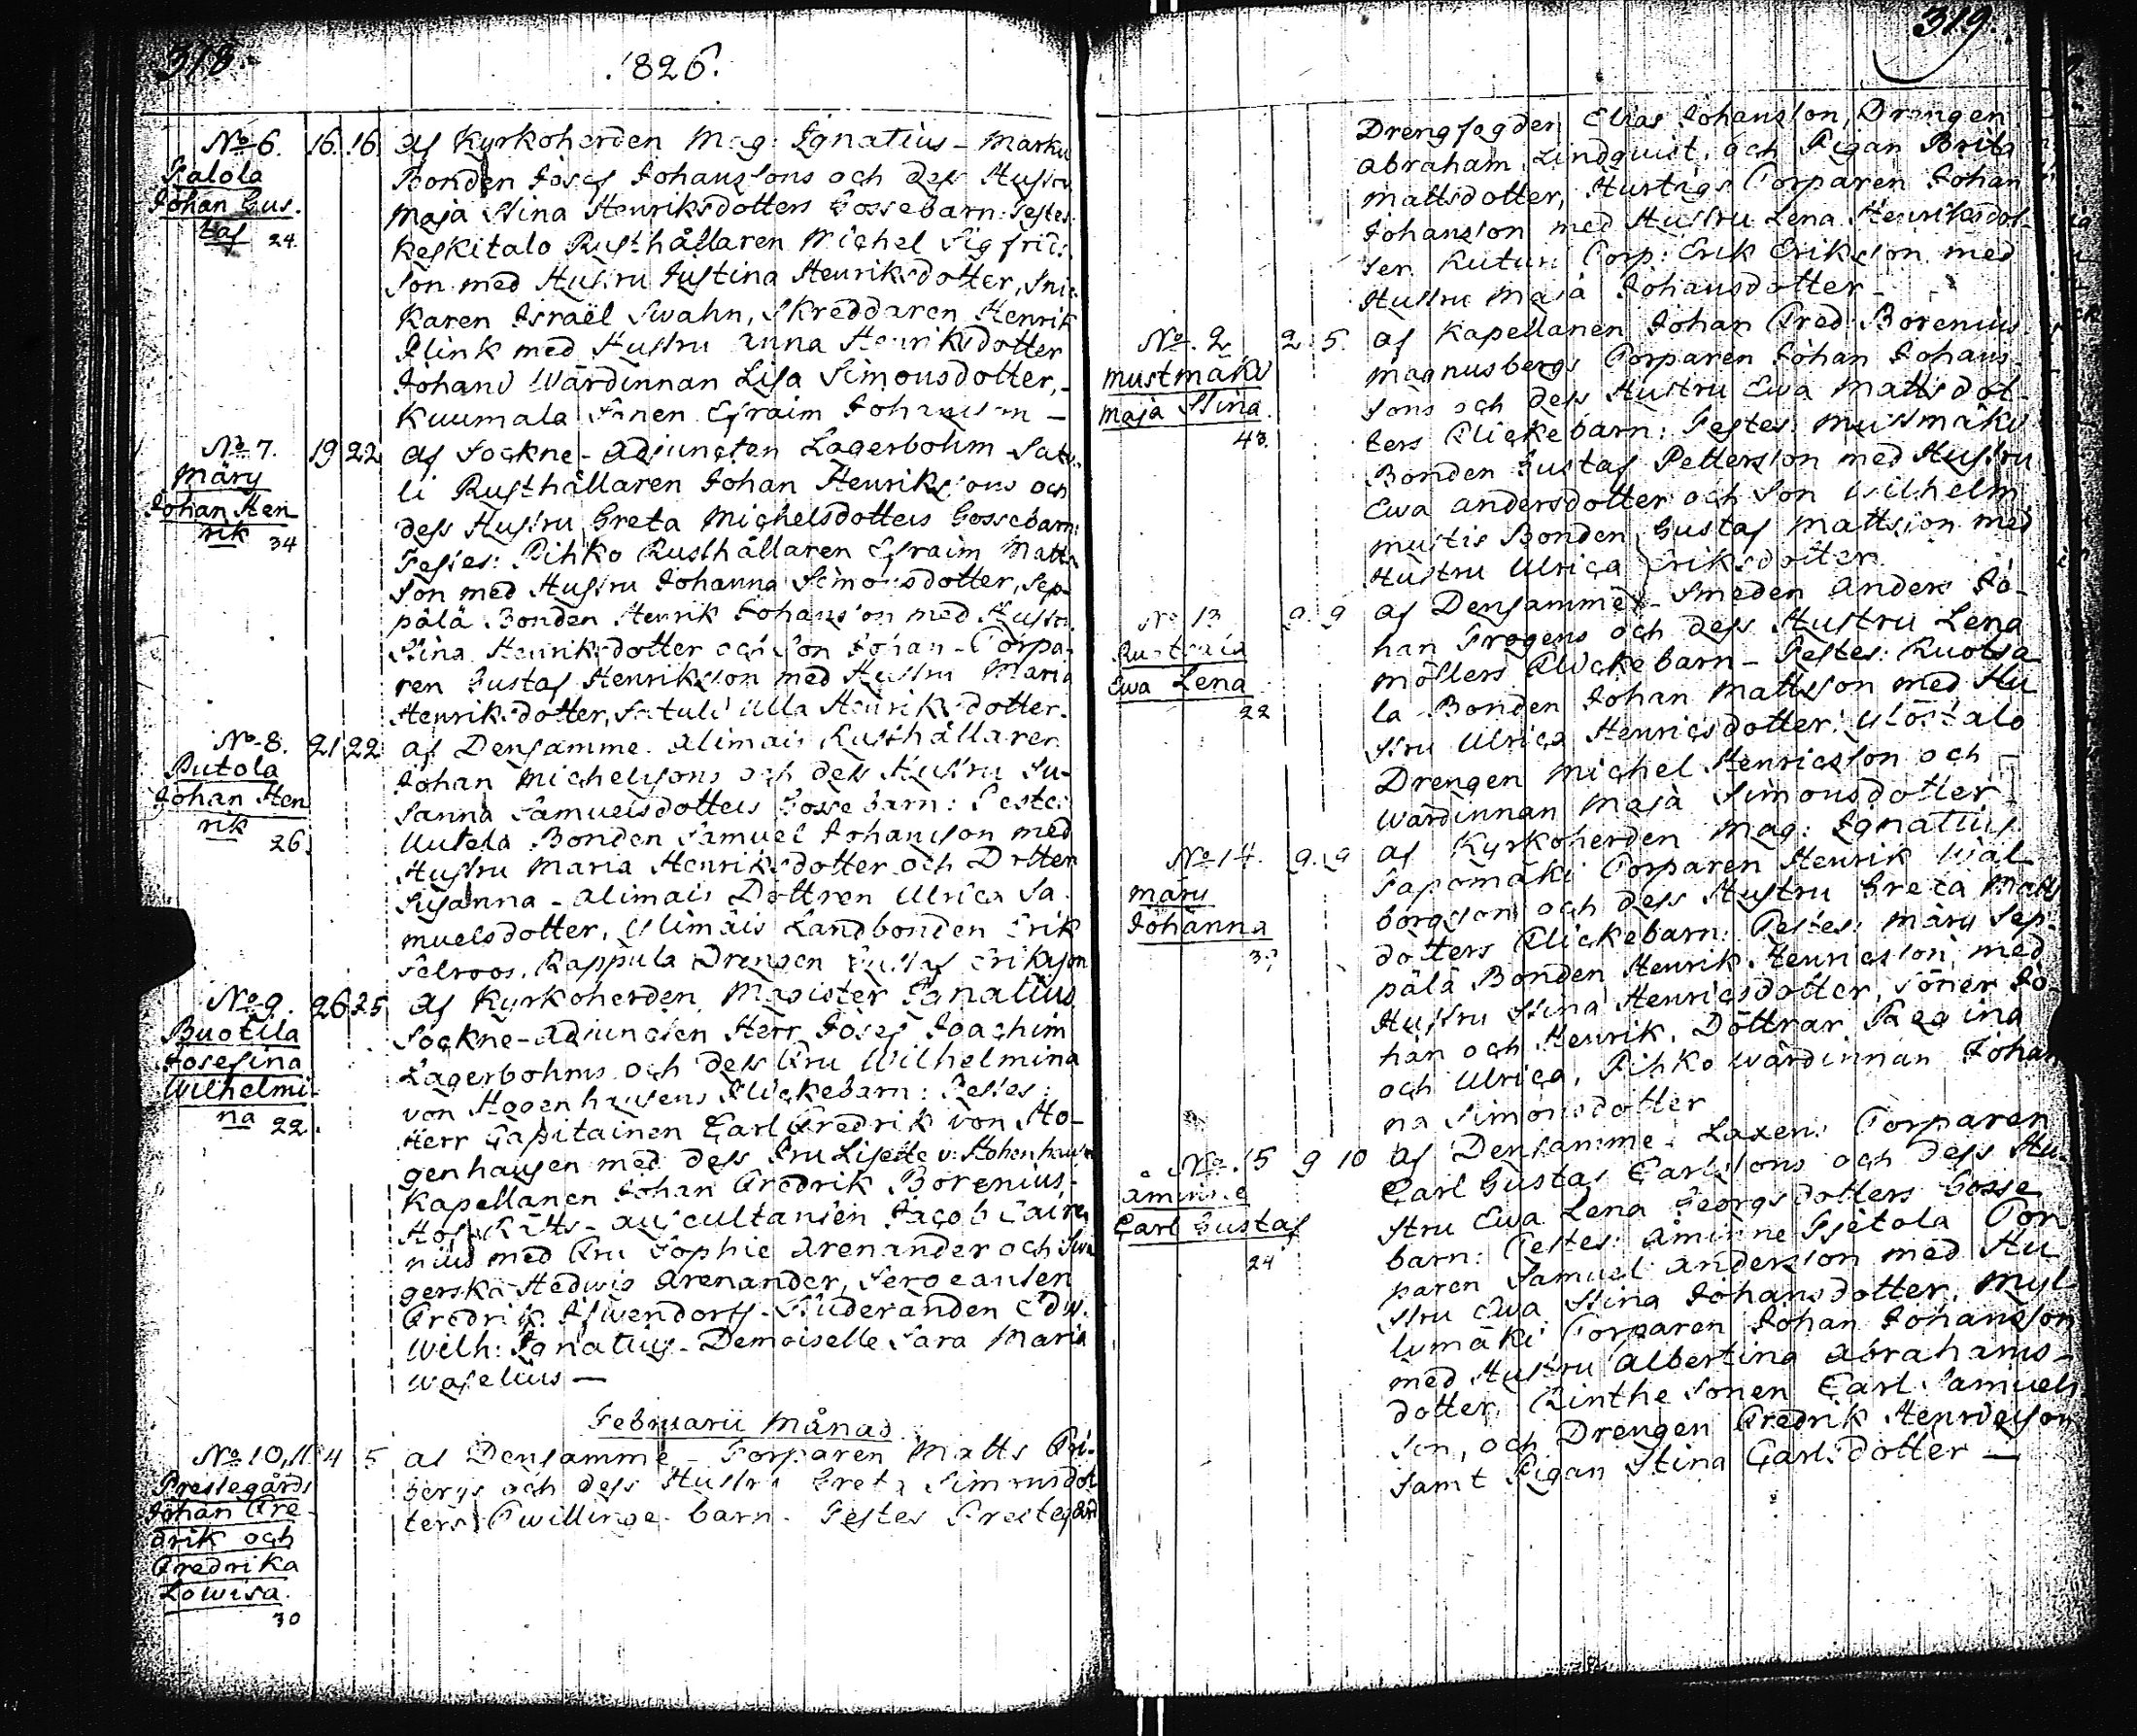 318.
1826.
No 6. 16. 16. af Kyrkoherden Mag: Ignatius - Marku
Palola Bonden Josef Johanssons och dess Hustru
Johan Gus- Maja Stina Henriksdotters Gossebarn: Testes:
taf 24. Keskitalo Rusthållaren Michel Sigfrids-
son med Hustru Justina Henriksdotter, Snic-
karen Israël Swahn, Skreddaren Henrik
Flink med Hustru Anna Henriksdotter
Johan Wärdinnan Lisa Simonsdotter,
Kuumala Sonen Efraim Johansson -
No 7. 19 22 af Sockne-Adjuncten Lagerbohm - Satu-
Märy li Rusthållaren Johan Henrikssons och
Johan Hen- dess Hustru Greta Michelsdotters Gossebarn:
rik 34 Testes: Pihko Rusthållaren Efraim Matts-
son med Hustru Johanna Simonsdotter, Sep-
pälä Bonden Henrik Johansson med Hustru
Stina Henriksdotter och Son Johan - Torpa-
ren Gustaf Henriksson med Hustru Maria
Henriksdotter, Ulla Henriksdotter.
No 8. 21 22 af Densamme. Alimais Rusthållaren
Putola Johan Michelssons och dess Hustru Su-
Johan Hen sanna Samuelsdotters Gossebarn: Testes
rik 26. Uutela Bonden Samuel Johansson med
Hustru Maria Henriksdotter och Dotter
Susanna - Alimais Dottren Ulrica Sa-
muelsdotter, Ylimäis Landbonden Erik
Selroos. Rappula Drengen Gustaf Eriksson
No 9. 26 25 af Kyrkoherden Magister Ignatius
Buotila Sockne-Adjuncten Herr Josef Joachim
Josefina Lagerbohms och dess Fru Wilhelmina
Wilhelmi- von Hogenhausens Flickebarn: Testes:
na 22. Herr Capitainen Carl Fredrik von Ho-
genhausen med dess Fru Lisette v: Hohenhausen
Kapellanen Johan Fredrik Borenius,
Hof Rätts-Auscultanten Jacob
med Fru Sophie Arenander och Swä-
gerska Hedwig Arenander, Sergeanten
Fredrik Studeranden Edw.
Wilh: Ignatius - Demoiselle Sara Maria
Waselius -
Februarii Månad
No 10, 11. 4 5 af Densamme - Torparen Matts Fri-
Prestegårds bergs och dess Hustru Greta Simonsdot-
Johan Fre- ters Twillinge-barn - Testes Prestegård
drik och
Fredrika
Lowisa.
30
319.
Drengfogden Elias Johansson, Drengen
Abraham Lindquist, och Pigan Brita
Mattsdotter, Hurtigs Torparen Johan
Johansson med Hustru Lena Henriksdot-
ter. Torp: Erik Eriksson med
Hustru Maja Johansdotter -
No. 2 5. af Kapellanen Johan Fred: Borenius
Mustmäki Magnusbergs Torparen Johan Johans-
Maja Stina. sons och dess Hustru Ewa Mattsdot-
43. ters Flickebarn: Testes: Mustmäki
Bonden Gustaf Petterson med Hustru
Ewa Andersdotter och Son Wilhelm
Mustis Bonden Gustaf Mattsson med
Hustru Ulrica Eriksdotter
No 13 9. 9 af Densamme - Smeden Anders Jo-
han och dess Hustru Lena
Ewa Lena Möllers Flickebarn - Testes: Ruotsa-
22 la Bonden Johan Mattsson med Hu-
stru Ulrica Henricsdotter. Ylöstalo
Drengen Michel Henricsson och -
Wärdinnan Maja Simonsdotter
No 14. 9. 9 af Kyrkoherden Mag: Ignatius
Märy Torparen Henrik Wal-
Johanna borgsson och dess Hustru Greta Matts
dotters Flickebarn: Testes: Märy Sep-
pälä Bonden Henrik Henricsson med
Hustru Stina Henricsdotter, Söner Jo-
han och Henrik, Döttrar
och Ulrica, Pihko Wärdinnan Johan
na Simonsdotter
No. 15 9 10 af Densamme - Laxens Torparen
Åminne Carl Gustaf Carlssons och dess Hu-
Carl Gustaf stru Ewa Lena Georgsdotters Gosse
24 barn: Testes: Åminne Tor-
paren Samuel Andersson med Hu-
stru Ewa Stina Johansdotter, Myl-
lymäki Torparen Johan Johansson
med Hustru Albertina Abrahams-
dotter, Sonen Carl Samuels-
son, och Drengen Fredrik Henricsson
samt Pigan Stina Carlsdotter -